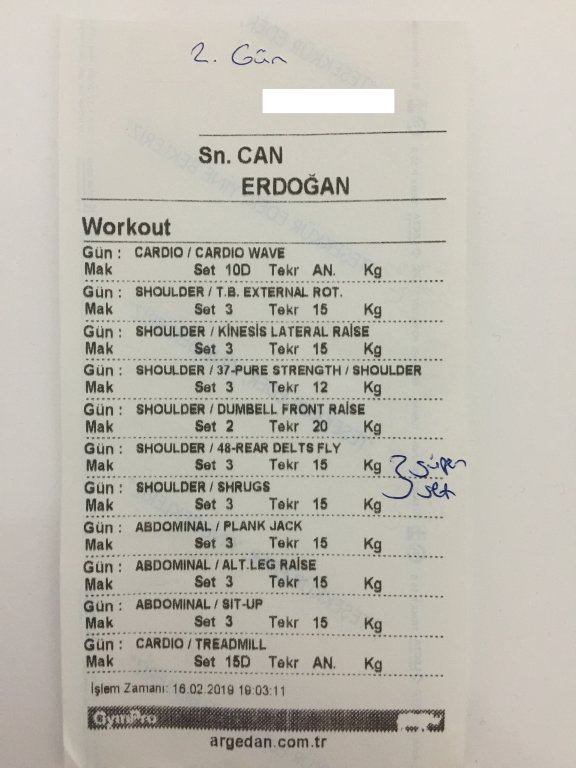 2. Gün
Sn. CAN
ERDOĞAN
Workout
Gün : CARDIO / CARDIO WAVE
Mak Set 10D Tekr AN. Kg
Gün : SHOULDER / T.B. EXTERNAL ROT.
Mak Set 3 Tekr 15 Kg
Gün : SHOULDER / KİNESİS LATERAL RAİSE
Mak Set 3 Tekr 15 Kg
Gün : SHOULDER / 37-PURE STRENGTH / SHOULDER
Mak Set 3 Tekr 12 Kg
Gün : SHOULDER / DUMBELL FRONT RAISE
Mak Set 2 Tekr 20 Kg
Gün : SHOULDER / 48-REAR DELTS FLY
Mak Set 3 Tekr 15 Kg süper
Gün : SHOULDER / SHRUGS set
Mak Set 3 Tekr 15 Kg
Gün : ABDOMINAL / PLANK JACK
Mak Set 3 Tekr 15 Kg
Gün : ABDOMINAL / ALT.LEG RAİSE
Mak Set 3 Tekr 15 Kg
Gün : ABDOMINAL / SIT-UP
Mak Set 3 Tekr 15 Kg
Gün : CARDIO / TREADMILL
Mak Set 15D Tekr AN. Kg
İşlem Zamanı: 16.02.2019 19:03:11
GymPro
argedan.com.tr